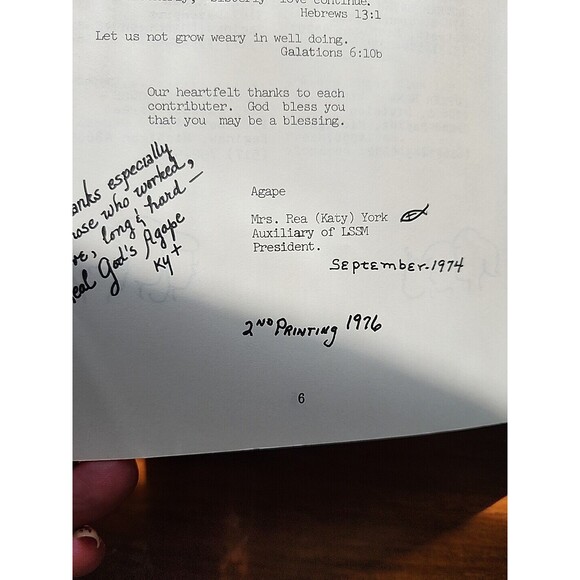 love continue.
Hebrews 13:1
Let us not grow weary in well doing.
Galations 6:10b
Our heartfelt thanks to each
contributer. God bless you
that you may be a blessing.
especially
who worked,
long & hard —
God's Agape
KY+
Agape
Mrs. Rea (Katy) York
Auxiliary of LSSM
President.
September-1974
2ND PRINTING 1976
6